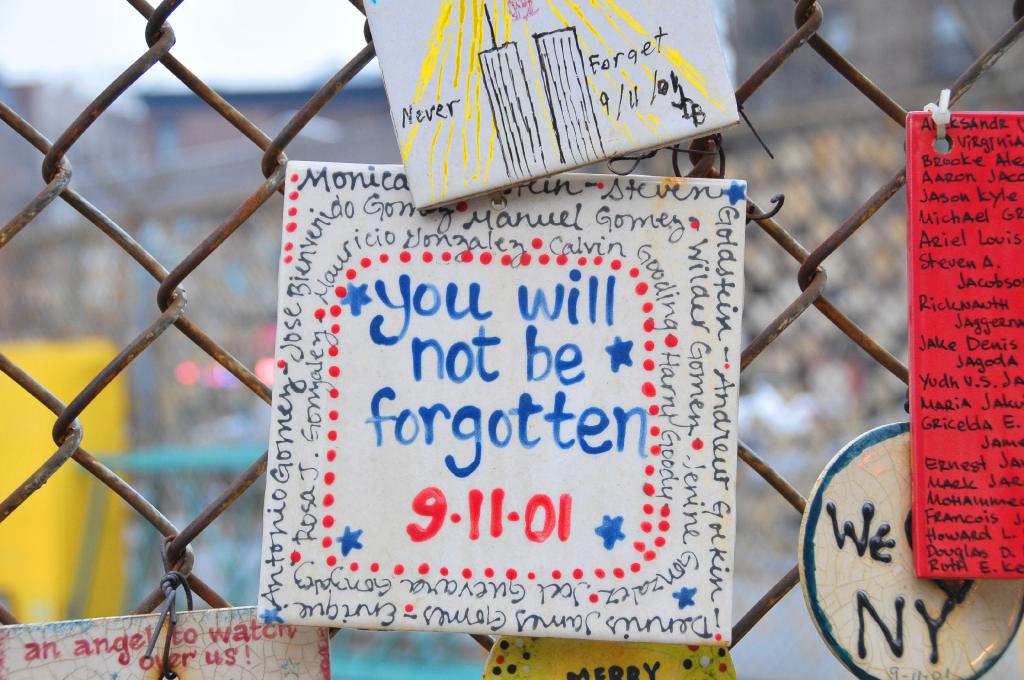 Never Forget
9/11/01
Monica
Steven Goldstein - Andrew Golkin -
Dennis James Gomes - Enrique
Antonio Gomez - Jose Bienvenido Gomez
Manuel Gomez - Wilder Gomez - Jenine
Gonzalez Joel Guevara Gonzalez
Rosa J. Gonzalez Mauricio Gonzalez - Calvin
Gooding Harry Goody
you will
not be
forgotten
9-11-01
an angel to watch
over us!
MERRY
We
NY
9-11-01
Aleksandr
Virginia
Brooke Ale
Aaron Jaco
Jason Kyle
Michael Gr
Ariel Louis
Steven A.
Jacobso
Ricknauth
Jaggerna
Jake Denis
Jagoda
Yudh V.S. Ja
Maria Jaku
Gricelda E.
Jame
Ernest Jam
Mark Jar
Mohamme
Francois J
Howard L.
Douglas D.
Ruth E. Ke